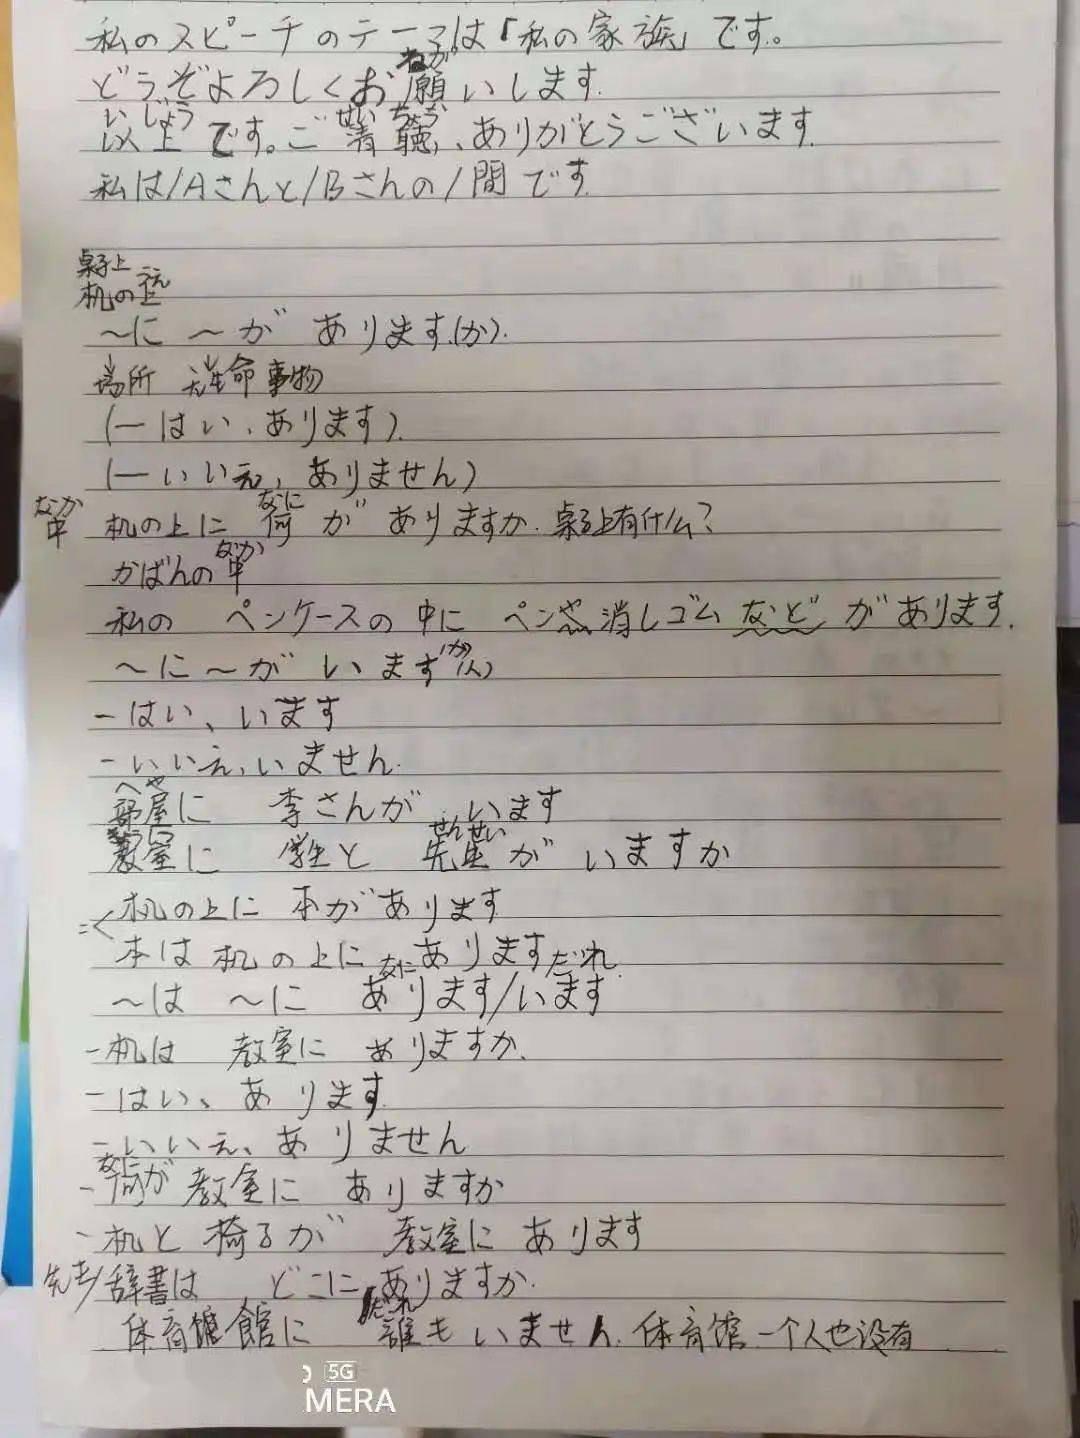 私のスピーチのテーマは「私の家族」です。
ねが
どうぞよろしくお願いします.
いじょう せいちょう
以上です。ご清聴、ありがとうございます.
私は/Aさんと/Bさんの/間です.
桌子上
うえ
机の上
〜に〜が あります.(か).
场所 无生命事物
(ーはい、あります).
(ーいいえ,ありません)
なか なに
中 机の上に 何が ありますか.桌子上有什么?
なか
かばんの中
私の ペンケースの中に ペンや消しゴムなどがあります.
〜に〜が います(か)
-はい、います
-いいえ,いません.
へや
部屋に 李さんが います
きょうしつ せんせい
教室に 学生と 先生が いますか
机の上に 本があります
=<
本は机の上にあります
なに だれ
〜は 〜に あります/います
-机は 教室に ありますか.
-はい、あります.
-いいえ、ありません
なに
-何が 教室に ありますか
-机と椅子が 教室に あります
辞書は どこに ありますか.
だれ
体育館に 誰も いません.体育馆一个人也没有
5G
MERA